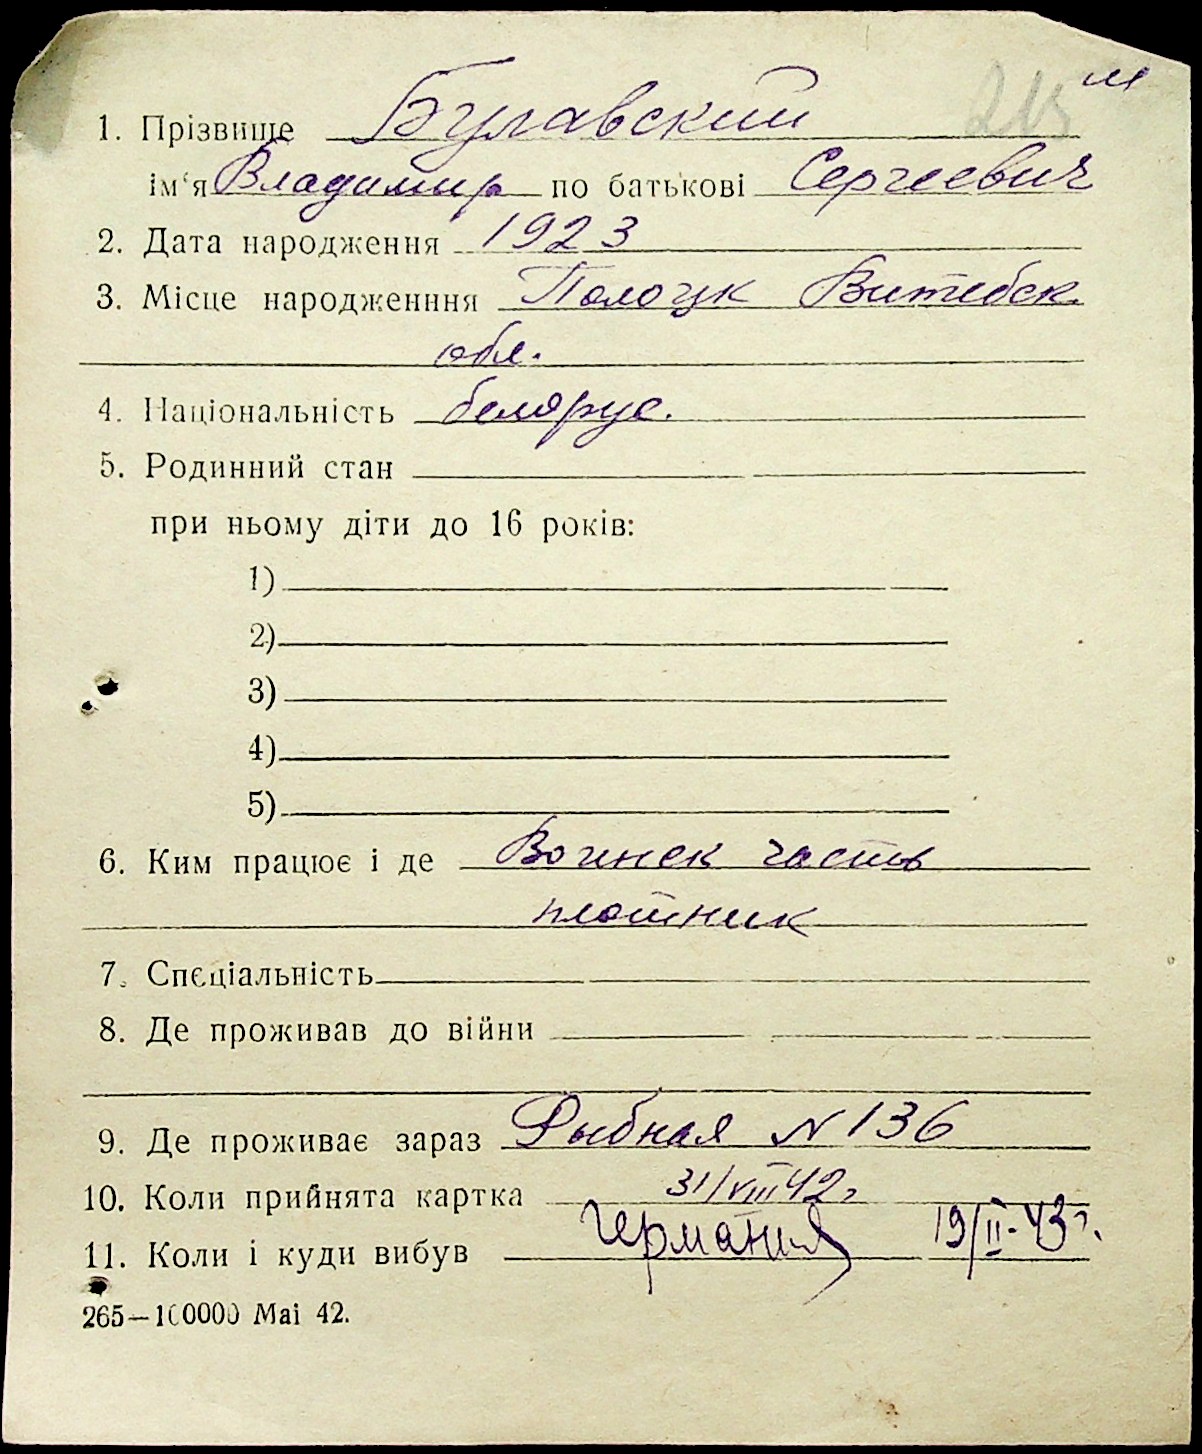 215 м
1. Прізвище Булавский
ім'я Владимир по батькові Сергеевич
2. Дата народження 1923
3. Місце народженння Полоцк Витебск.
обл.
4. Національність белорус.
5. Родинний стан
при ньому діти до 16 років:
1)
2)
3)
4)
5)
6. Ким працює і де Воинск часть
плотник
7. Спеціальність
8. Де проживав до війни
9. Де проживає зараз Рыбная N 136
10. Коли прийнята картка 31/VIII 42 г.
11. Коли і куди вибув Германия 19/II-43 г.
265—100000 Mai 42.